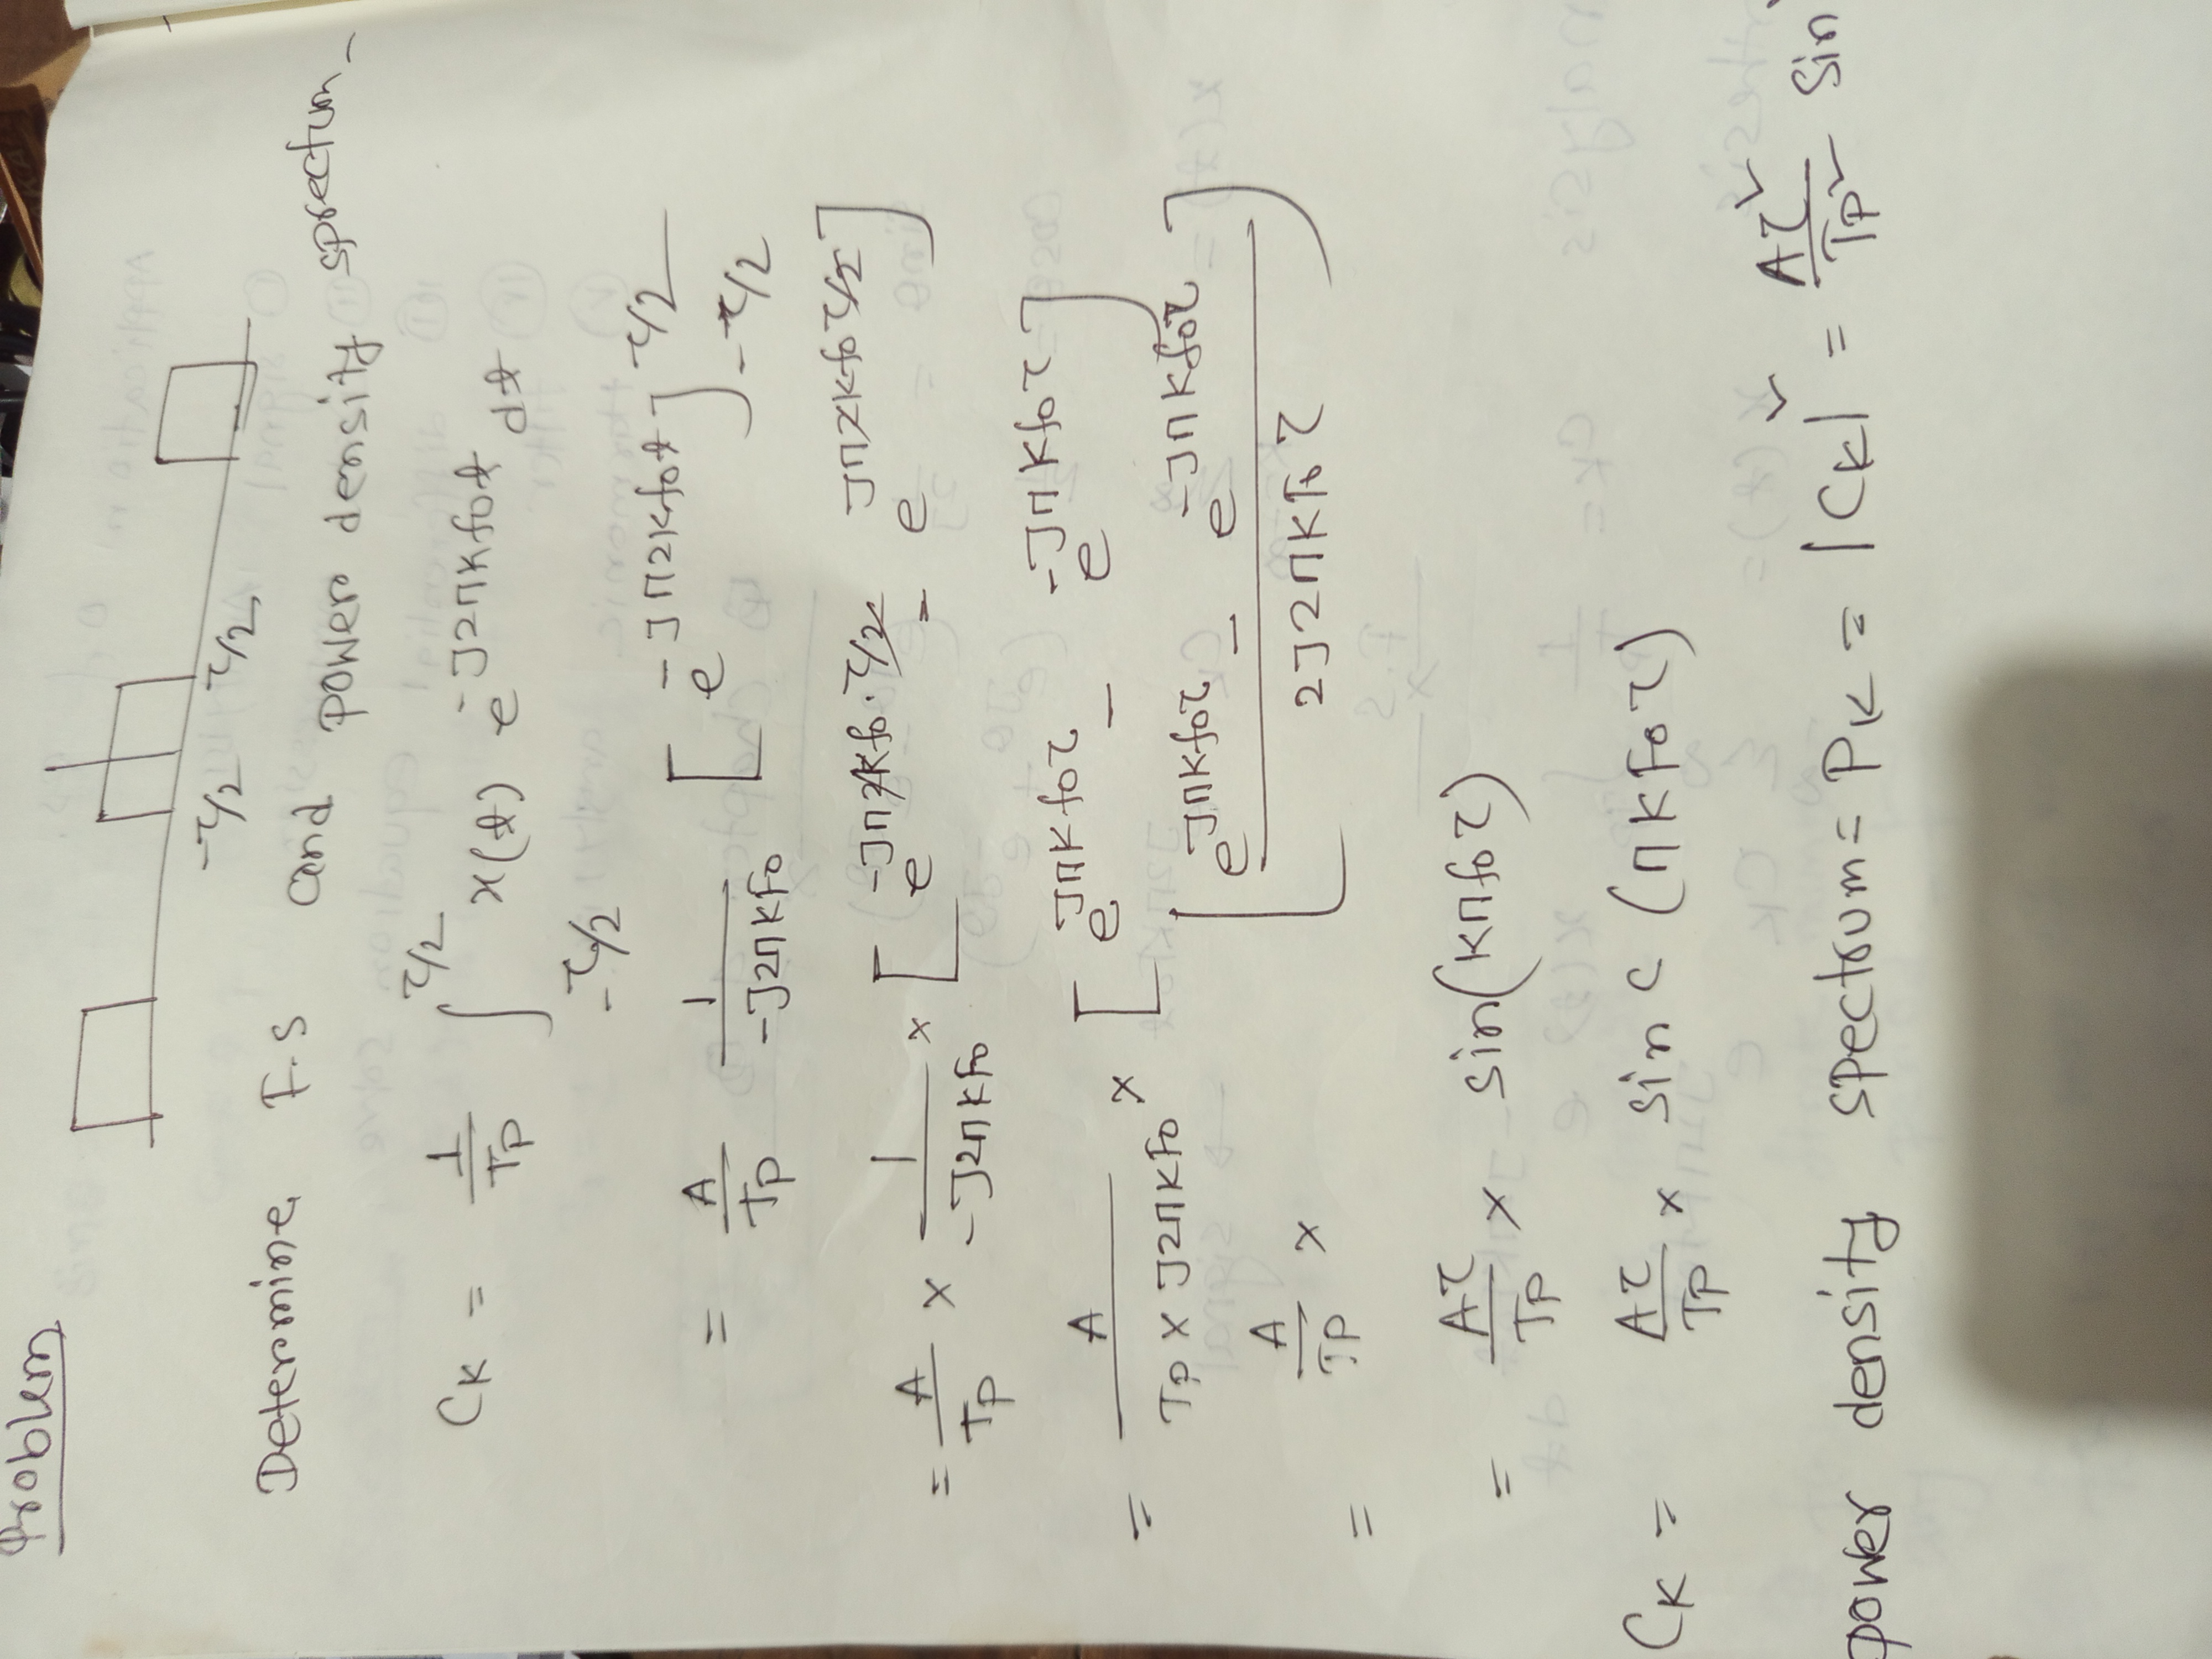 Problem
-τ/2 τ/2
Determine F.S and power density sprectum
CK = 1/TP ∫_{-τ/2}^{τ/2} x(t) e^{-J2πKfot} dt
= A/TP 1/-J2πKFo [e^{-Jπ2Kfot}]_{-τ/2}^{τ/2}
= A/TP × 1/-J2πKFo × [e^{-Jπ2Kfo.τ/2} - e^{Jπ2Kfoτ/2}]
= A/TP × J2πKFo × [e^{JπKfoτ} - e^{-JπKfoτ}]
= A/TP × [e^{JπKfoτ} - e^{-JπKfoτ} / 2J2πKFoτ]
= Aτ/TP × sin(Kπfoτ)
CK = Aτ/TP × sinc (πKFoτ)
power density spectrum = PK = |CK|² = Aτ²/TP² Sin